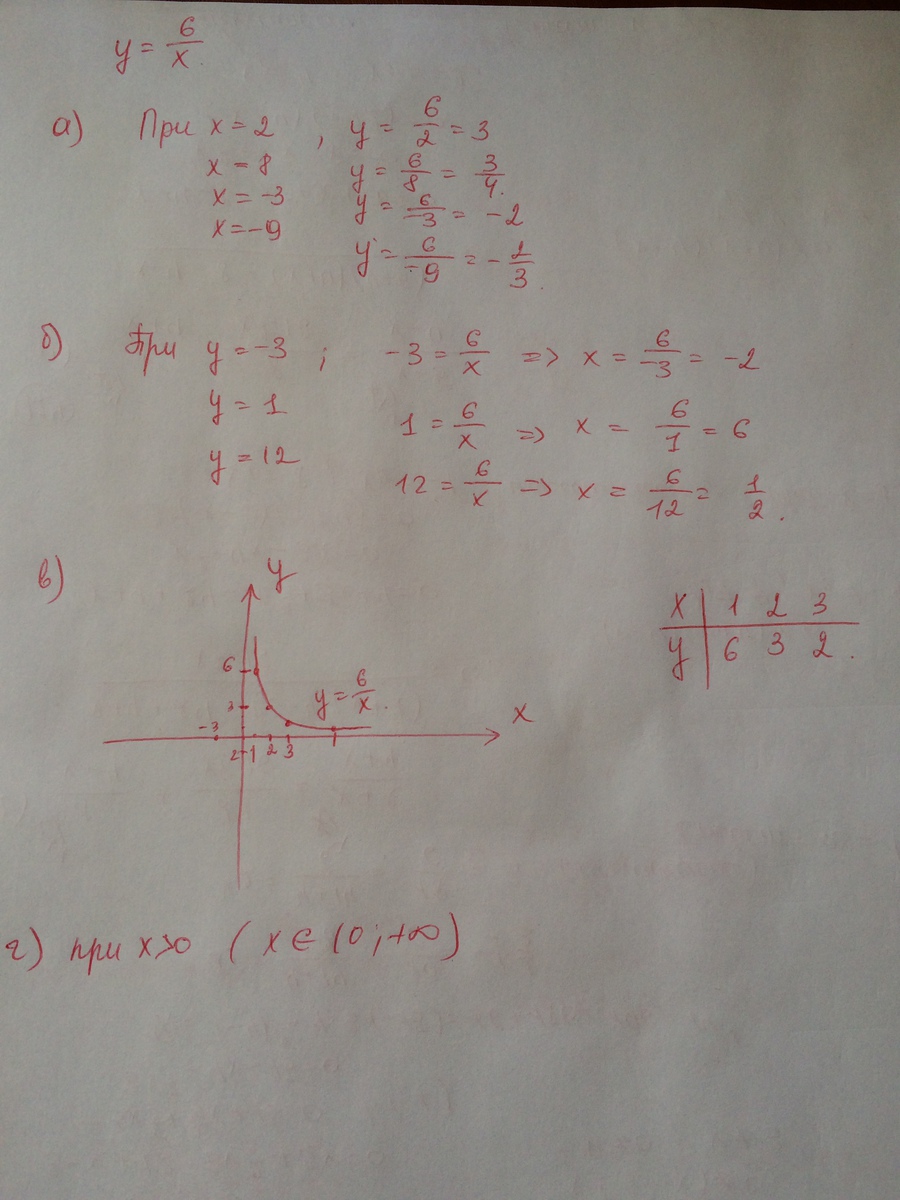 y = 6/x
а) При x = 2, y = 6/2 = 3
x = 8 y = 6/8 = 3/4.
x = -3 y = 6/-3 = -2
x = -9 y = 6/-9 = -2/3.
б) При y = -3; -3 = 6/x => x = 6/-3 = -2
y = 1 1 = 6/x => x = 6/1 = 6
y = 12 12 = 6/x => x = 6/12 = 1/2.
в) y
x | 1 2 3
y | 6 3 2.
6
3 y = 6/x.
-3 x
2 1 2 3
г) при x>0 (x ∈ (0; +∞)